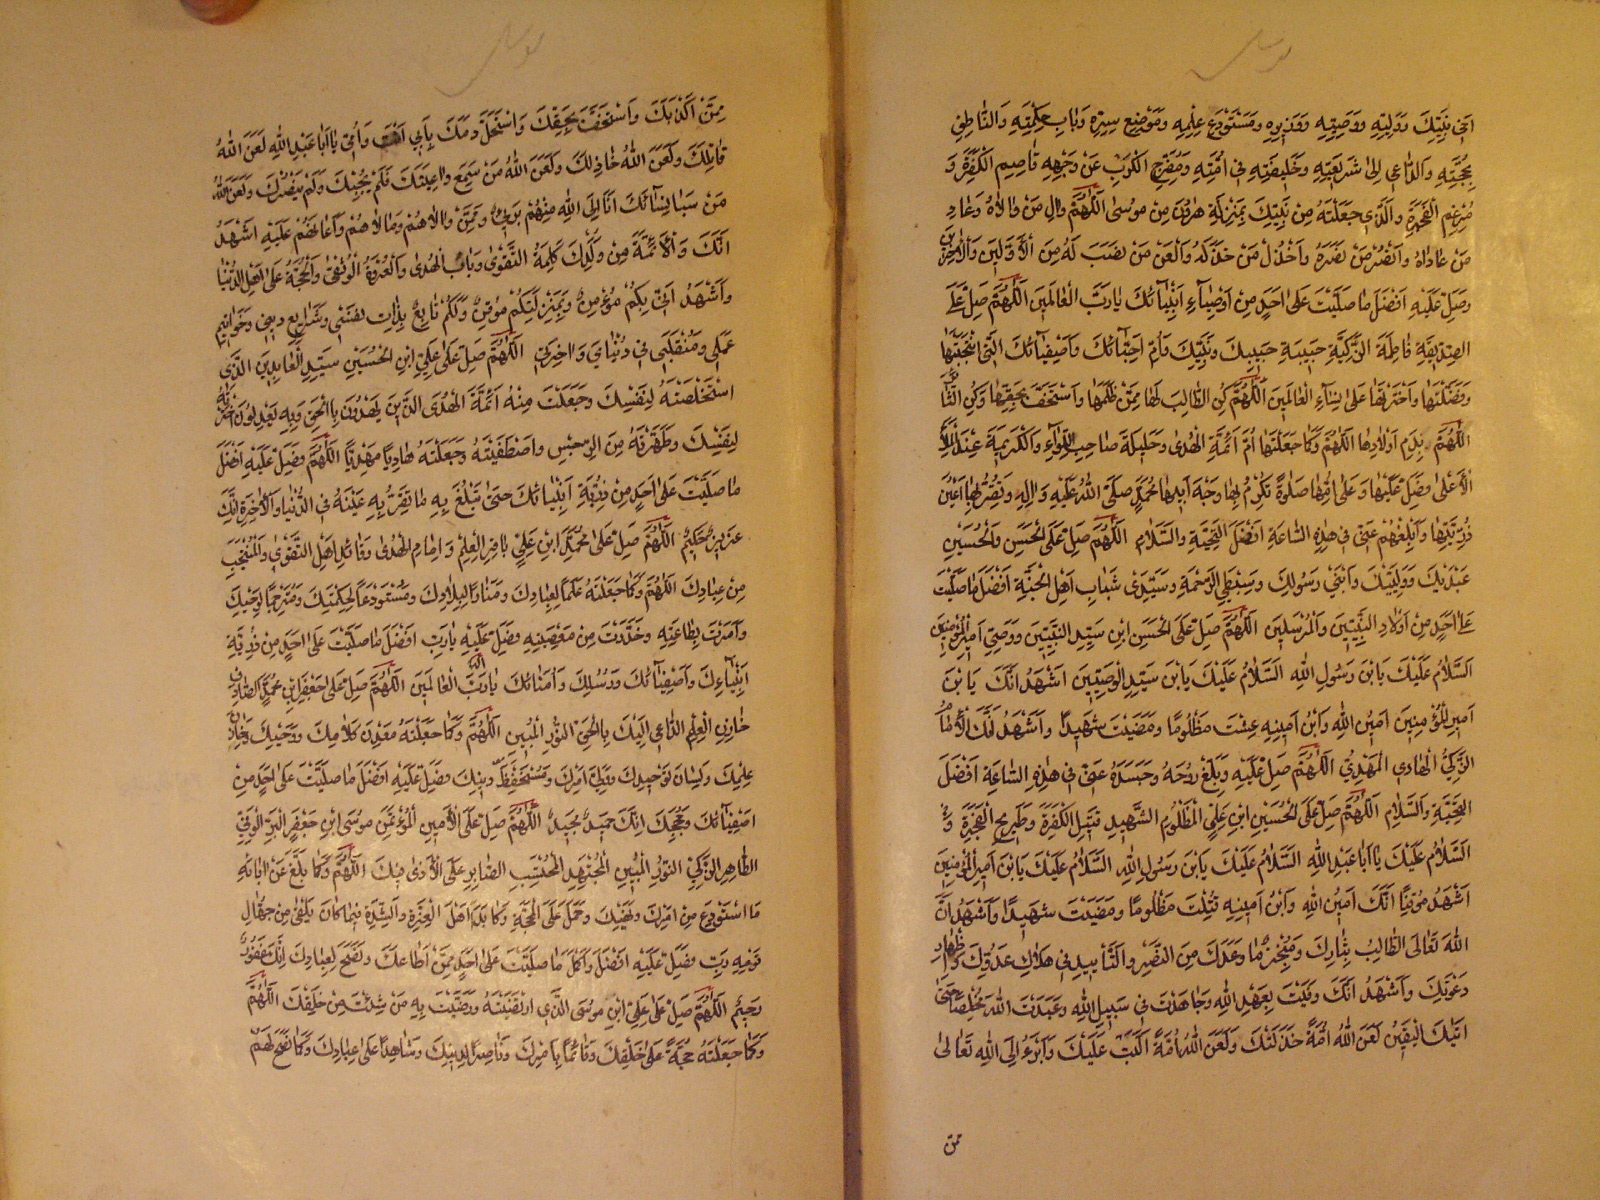 اَخِي نَبِيِّكَ وَوَلِيِّهِ وَوَصِيِّهِ وَوَزِيرِهِ وَمُسْتَوْدَعِ عِلْمِهِ وَمَوْضِعِ سِرِّهِ وَبَابِ حِكْمَتِهِ وَالنَّاطِقِ
بِحُجَّتِهِ وَالدَّاعِي اِلىٰ شَرِيعَتِهِ وَخَلِيفَتِهِ فِي اُمَّتِهِ وَمُفَرِّجِ الْكَرْبِ عَنْ وَجْهِهِ قَاصِمِ الْكَفَرَةِ وَ
مُرْغِمِ الْفَجَرَةِ وَالَّذِي جَعَلْتَهُ مِنْ نَبِيِّكَ بِمَنْزِلَةِ هٰرُونَ مِنْ مُوسىٰ اَللّٰهُمَّ وَالِ مَنْ وَالَاهُ وَعَادِ
مَنْ عَادَاهُ وَانْصُرْ مَنْ نَصَرَهُ وَاخْذُلْ مَنْ خَذَلَهُ وَالْعَنْ مَنْ نَصَبَ لَهُ مِنَ الْاَوَّلِينَ وَالْاٰخِرِينَ
وَصَلِّ عَلَيْهِ اَفْضَلَ مَا صَلَّيْتَ عَلىٰ اَحَدٍ مِنْ اَوْصِيَآءِ اَنْبِيَآئِكَ يَا رَبَّ الْعَالَمِينَ اَللّٰهُمَّ صَلِّ عَلَى
الصِّدِّيقَةِ فَاطِمَةَ الزَّكِيَّةِ حَبِيبَةِ حَبِيبِكَ وَنَبِيِّكَ وَاُمِّ اَحِبَّآئِكَ وَاَصْفِيَآئِكَ الَّتِي انْتَجَبْتَهَا
وَفَضَّلْتَهَا وَاخْتَرْتَهَا عَلىٰ نِسَآءِ الْعَالَمِينَ اَللّٰهُمَّ كُنِ الطَّالِبَ لَهَا مِمَّنْ ظَلَمَهَا وَاسْتَخَفَّ بِحَقِّهَا وَكُنِ الثَّائِرَ
اَللّٰهُمَّ بِدَمِ اَوْلَادِهَا اَللّٰهُمَّ وَكَمَا جَعَلْتَهَا اُمَّ اَئِمَّةِ الْهُدىٰ وَحَلِيلَةَ صَاحِبِ اللِّوَآءِ وَالْكَرِيمَةَ عِنْدَ الْمَلَاِ
الْاَعْلىٰ فَصَلِّ عَلَيْهَا وَعَلىٰ اُمِّهَا صَلوٰةً تُكْرِمُ بِهَا وَجْهَ اَبِيهَا مُحَمَّدٍ صَلَّى اللّٰهُ عَلَيْهِ وَاٰلِهِ وَتُقِرُّ بِهَا اَعْيُنَ
ذُرِّيَّتِهَا وَاَبْلِغْهُمْ عَنِّي فِي هٰذِهِ السَّاعَةِ اَفْضَلَ التَّحِيَّةِ وَالسَّلَامِ اَللّٰهُمَّ صَلِّ عَلَى الْحَسَنِ وَالْحُسَيْنِ
عَبْدَيْكَ وَوَلِيَّيْكَ وَابْنَيْ رَسُولِكَ وَسِبْطَيِ الرَّحْمَةِ وَسَيِّدَيْ شَبَابِ اَهْلِ الْجَنَّةِ اَفْضَلَ مَا صَلَّيْتَ
عَلىٰ اَحَدٍ مِنْ اَوْلَادِ النَّبِيِّينَ وَالْمُرْسَلِينَ اَللّٰهُمَّ صَلِّ عَلَى الْحَسَنِ ابْنِ سَيِّدِ النَّبِيِّينَ وَوَصِيِّ اَمِيرِ الْمُؤْمِنِينَ
اَلسَّلَامُ عَلَيْكَ يَا بْنَ رَسُولِ اللّٰهِ اَلسَّلَامُ عَلَيْكَ يَا بْنَ سَيِّدِ الْوَصِيِّينَ اَشْهَدُ اَنَّكَ يَا بْنَ
اَمِيرِ الْمُؤْمِنِينَ اَمِينُ اللّٰهِ وَابْنُ اَمِينِهِ عِشْتَ مَظْلُومًا وَمَضَيْتَ شَهِيدًا وَاَشْهَدُ اَنَّكَ الْاِمَامُ
الزَّكِيُّ الْهَادِي الْمَهْدِيُّ اَللّٰهُمَّ صَلِّ عَلَيْهِ وَبَلِّغْ رُوحَهُ وَجَسَدَهُ عَنِّي فِي هٰذِهِ السَّاعَةِ اَفْضَلَ
التَّحِيَّةِ وَالسَّلَامِ اَللّٰهُمَّ صَلِّ عَلَى الْحُسَيْنِ ابْنِ عَلِيٍّ الْمَظْلُومِ الشَّهِيدِ قَتِيلِ الْكَفَرَةِ وَطَرِيحِ الْفَجَرَةِ وَ
اَلسَّلَامُ عَلَيْكَ يَا اَبَا عَبْدِ اللّٰهِ اَلسَّلَامُ عَلَيْكَ يَا بْنَ رَسُولِ اللّٰهِ اَلسَّلَامُ عَلَيْكَ يَا بْنَ اَمِيرِ الْمُؤْمِنِينَ
اَشْهَدُ مُوقِنًا اَنَّكَ اَمِينُ اللّٰهِ وَابْنُ اَمِينِهِ قُتِلْتَ مَظْلُومًا وَمَضَيْتَ شَهِيدًا وَاَشْهَدُ اَنَّ
اللّٰهَ تَعَالَى الطَّالِبُ بِثَارِكَ وَمُنْجِزٌ مَا وَعَدَكَ مِنَ النَّصْرِ وَالتَّأْيِيدِ فِي هَلَاكِ عَدُوِّكَ وَاِظْهَارِ
دَعْوَتِكَ وَاَشْهَدُ اَنَّكَ وَفَيْتَ بِعَهْدِ اللّٰهِ وَجَاهَدْتَ فِي سَبِيلِ اللّٰهِ وَعَبَدْتَ اللّٰهَ مُخْلِصًا حَتّىٰ
اَتٰيكَ الْيَقِينُ لَعَنَ اللّٰهُ اُمَّةً خَذَلَتْكَ وَلَعَنَ اللّٰهُ اُمَّةً اَلَّبَتْ عَلَيْكَ وَاَبْرَءُ اِلَى اللّٰهِ تَعَالىٰ
ممن
مِمَّنْ اَكْذَبَكَ وَاسْتَخَفَّ بِحَقِّكَ وَاسْتَحَلَّ دَمَكَ بِاَبِي اَنْتَ وَاُمِّي يَا اَبَا عَبْدِ اللّٰهِ لَعَنَ اللّٰهُ
قَاتِلَكَ وَلَعَنَ اللّٰهُ خَاذِلَكَ وَلَعَنَ اللّٰهُ مَنْ سَمِعَ وَاعِيَتَكَ فَلَمْ يُجِبْكَ وَلَمْ يَنْصُرْكَ وَلَعَنَ اللّٰهُ
مَنْ سَبَا نِسَآئَكَ اَنَا اِلَى اللّٰهِ مِنْهُمْ بَرِيءٌ وَمِمَّنْ وَالَاهُمْ وَمَالَاهُمْ وَاَعَانَهُمْ عَلَيْهِ اَشْهَدُ
اَنَّكَ وَالْاَئِمَّةَ مِنْ وُلْدِكَ كَلِمَةُ التَّقْوىٰ وَبَابُ الْهُدىٰ وَالْعُرْوَةُ الْوُثْقىٰ وَالْحُجَّةُ عَلىٰ اَهْلِ الدُّنْيَا
وَاَشْهَدُ اَنِّي بِكُمْ مُؤْمِنٌ وَبِمَنْزِلَتِكُمْ مُوقِنٌ وَلَكُمْ تَابِعٌ بِذَاتِ نَفْسِي وَشَرَايِعِ دِينِي وَخَوَاتِيمِ
عَمَلِي وَمُنْقَلَبِي فِي دُنْيَايَ وَاٰخِرَتِي اَللّٰهُمَّ صَلِّ عَلىٰ عَلِيِّ ابْنِ الْحُسَيْنِ سَيِّدِ الْعَابِدِينَ الَّذِي
اسْتَخْلَصْتَهُ لِنَفْسِكَ وَجَعَلْتَ مِنْهُ اَئِمَّةَ الْهُدَى الَّذِينَ يَهْدُونَ بِالْحَقِّ وَبِهِ يَعْدِلُونَ اخْتَرْتَهُ
لِنَفْسِكَ وَطَهَّرْتَهُ مِنَ الرِّجْسِ وَاصْطَفَيْتَهُ وَجَعَلْتَهُ هَادِيًا مَهْدِيًّا اَللّٰهُمَّ فَصَلِّ عَلَيْهِ اَفْضَلَ
مَا صَلَّيْتَ عَلىٰ اَحَدٍ مِنْ ذُرِّيَّةِ اَنْبِيَائِكَ حَتّىٰ تَبْلُغَ بِهِ مَا تَقَرُّ بِهِ عَيْنُهُ فِي الدُّنْيَا وَالْاٰخِرَةِ اِنَّكَ
عَزِيزٌ حَكِيمٌ اَللّٰهُمَّ صَلِّ عَلىٰ مُحَمَّدِ ابْنِ عَلِيٍّ بَاقِرِ الْعِلْمِ وَاِمَامِ الْهُدىٰ وَقَائِدِ اَهْلِ التَّقْوىٰ وَالْمُنْتَجَبِ
مِنْ عِبَادِكَ اَللّٰهُمَّ وَكَمَا جَعَلْتَهُ عَلَمًا لِعِبَادِكَ وَمَنَارًا لِبِلَادِكَ وَمُسْتَوْدَعًا لِحِكْمَتِكَ وَمُتَرْجِمًا لِوَحْيِكَ
وَاَمَرْتَ بِطَاعَتِهِ وَحَذَّرْتَ مِنْ مَعْصِيَتِهِ فَصَلِّ عَلَيْهِ يَا رَبِّ اَفْضَلَ مَا صَلَّيْتَ عَلىٰ اَحَدٍ مِنْ ذُرِّيَّةِ
اَنْبِيَآءِكَ وَاَصْفِيَآئِكَ وَرُسُلِكَ وَاُمَنَائِكَ يَا رَبَّ الْعَالَمِينَ اَللّٰهُمَّ صَلِّ عَلىٰ جَعْفَرِ ابْنِ مُحَمَّدٍ الصَّادِقِ
خَازِنِ الْعِلْمِ الدَّاعِي اِلَيْكَ بِالْحَقِّ النُّورِ الْمُبِينِ اَللّٰهُمَّ وَكَمَا جَعَلْتَهُ مَعْدِنَ كَلَامِكَ وَوَحْيِكَ وَخَازِنَ
عِلْمِكَ وَلِسَانَ تَوْحِيدِكَ وَوَلِيَّ اَمْرِكَ وَمُسْتَحْفَظَ دِينِكَ فَصَلِّ عَلَيْهِ اَفْضَلَ مَا صَلَّيْتَ عَلىٰ اَحَدٍ مِنْ
اَصْفِيَآئِكَ وَحُجَجِكَ اِنَّكَ حَمِيدٌ مَجِيدٌ اَللّٰهُمَّ صَلِّ عَلَى الْاَمِينِ الْمُؤْتَمَنِ مُوسَى ابْنِ جَعْفَرٍ الْبَرِّ الْوَفِيِّ
الطَّاهِرِ الزَّكِيِّ النُّورِ الْمُبِينِ الْمُجْتَهِدِ الْمُحْتَسِبِ الصَّابِرِ عَلَى الْاَذىٰ فِيكَ اَللّٰهُمَّ وَكَمَا بَلَّغَ عَنْ اٰبَائِهِ
مَا اسْتُودِعَ مِنْ اَمْرِكَ وَنَهْيِكَ وَحَمَلَ عَلَى الْمَحَجَّةِ وَكَابَدَ اَهْلَ الْعِزَّةِ وَالشِّدَّةِ فِيمَا كَانَ يَلْقىٰ مِنْ جُهَّالِ
قَوْمِهِ رَبِّ فَصَلِّ عَلَيْهِ اَفْضَلَ وَاَكْمَلَ مَا صَلَّيْتَ عَلىٰ اَحَدٍ مِمَّنْ اَطَاعَكَ وَنَصَحَ لِعِبَادِكَ اِنَّكَ غَفُورٌ
رَحِيمٌ اَللّٰهُمَّ صَلِّ عَلىٰ عَلِيِّ ابْنِ مُوسَى الَّذِي ارْتَضَيْتَهُ وَرَضَّيْتَ بِهِ مَنْ شِئْتَ مِنْ خَلْقِكَ اَللّٰهُمَّ
وَكَمَا جَعَلْتَهُ حُجَّةً عَلىٰ خَلْقِكَ وَقَائِمًا بِاَمْرِكَ وَنَاصِرًا لِدِينِكَ وَشَاهِدًا عَلىٰ عِبَادِكَ وَكَمَا نَصَحَ لَهُمْ